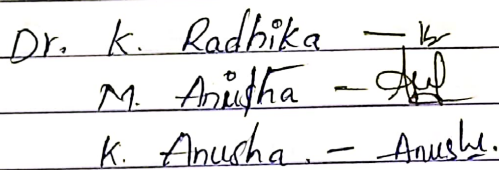 Dr. K. Radhika —
M. Anusha –
K. Anusha. – Anusha.